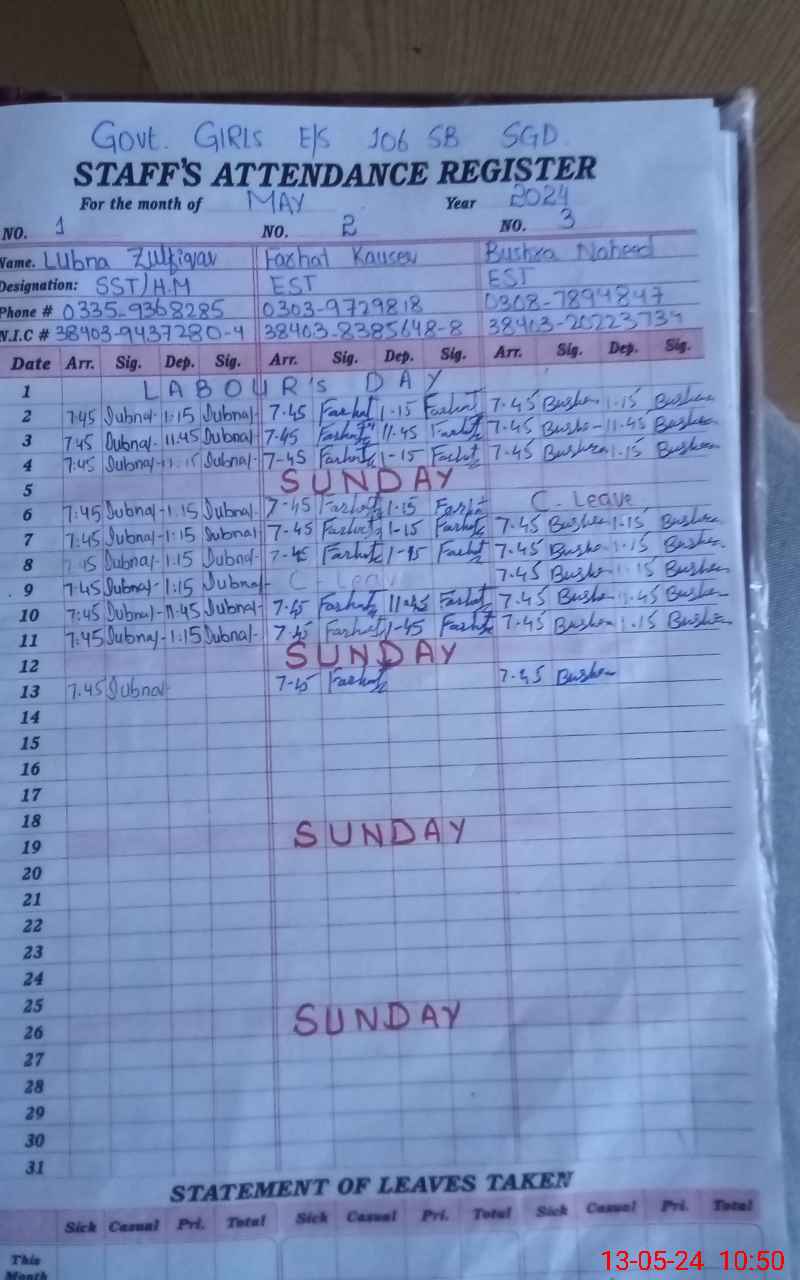 Govt. GIRLS E/S 106 SB SGD.
STAFF'S ATTENDANCE REGISTER
For the month of MAY Year 2024
NO. 1 NO. 2 NO. 3
Name. Lubna Zulfiqar Farhat Kauser Bushra Naheed
Designation: SST/H.M EST EST
Phone # 0335-9368285 0303-9729818 0308-7894847
N.I.C # 38403-9437280-4 38403-8385648-8 38403-20223734
Date Arr. Sig. Dep. Sig. Arr. Sig. Dep. Sig. Arr. Sig. Dep. Sig.
1 LABOUR's DAY
2 7:45 Lubna 1:15 Lubna 7-45 Farhat 1-15 Farhat 7-45 Bushra 1.15 Bushra
3 7:45 Lubna 11.45 Lubna 7-45 Farhat 11.45 Farhat 7-45 Bushra 11-45 Bushra
4 7:45 Lubna 1:15 Lubna 7-45 Farhat 1-15 Farhat 7-45 Bushra 1.15 Bushra
5 SUNDAY
6 7:45 Lubna 1.15 Lubna 7-45 Farhat 1-15 Farhat C-Leave
7 7:45 Lubna 1:15 Lubna 7-45 Farhat 1-15 Farhat 7-45 Bushra 1.15 Bushra
8 Lubna 1:15 Lubna 7-45 Farhat Farhat 7-45 Bushra 1.15 Bushra
9 7:45 Lubna 1:15 Lubna C-Leav 7-45 Bushra 1.15 Bushra
10 7:45 Lubna 11.45 Lubna 7-45 Farhat 11-45 Farhat 7-45 Bushra 11.45 Bushra
11 7:45 Lubna 1:15 Lubna 7-45 Farhat 1-45 Farhat 7-45 Bushra 1.15 Bushra
12 SUNDAY
13 7.45 Lubna 7-45 Farhat 7-45 Bushra
14
15
16
17
18
19 SUNDAY
20
21
22
23
24
25
26 SUNDAY
27
28
29
30
31
STATEMENT OF LEAVES TAKEN
Sick Casual Pri. Total Sick Casual Pri. Total Sick Casual Pri. Total
This
Month
13-05-24 10:50